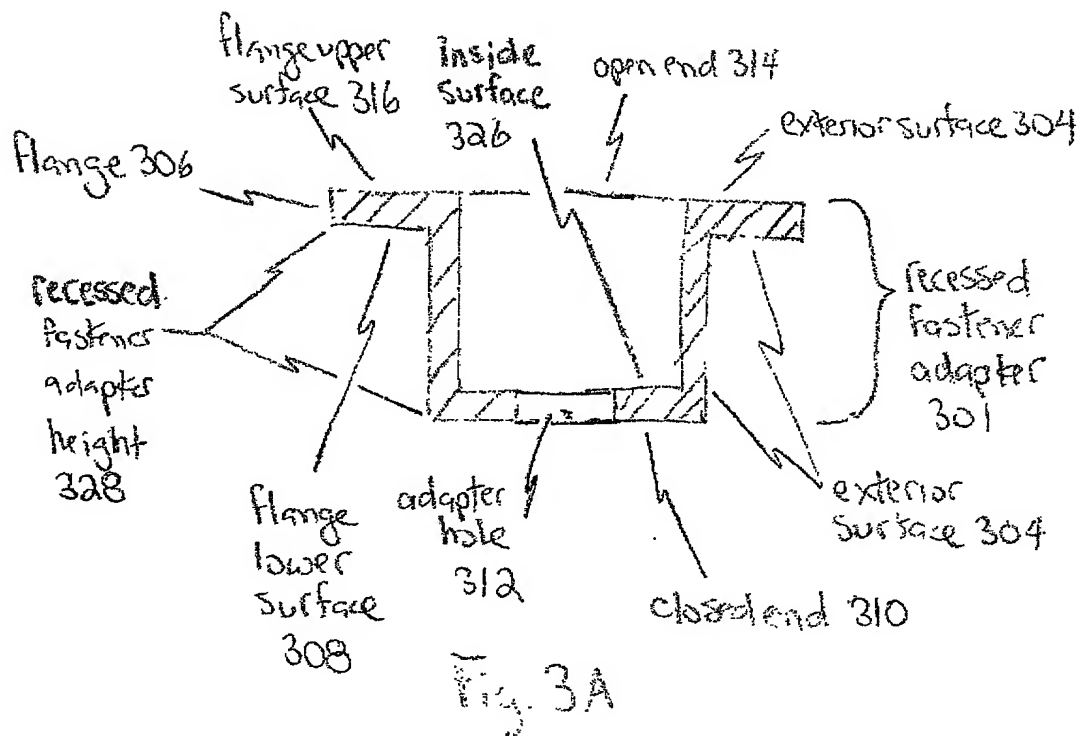 flange upper
surface 316
inside
surface
326
open end 314
exterior surface 304
flange 306
recessed
fastener
adapter
height
328
recessed
fastener
adapter
301
flange
lower
surface
308
adapter
hole
312
exterior
surface 304
closed end 310
Fig. 3A